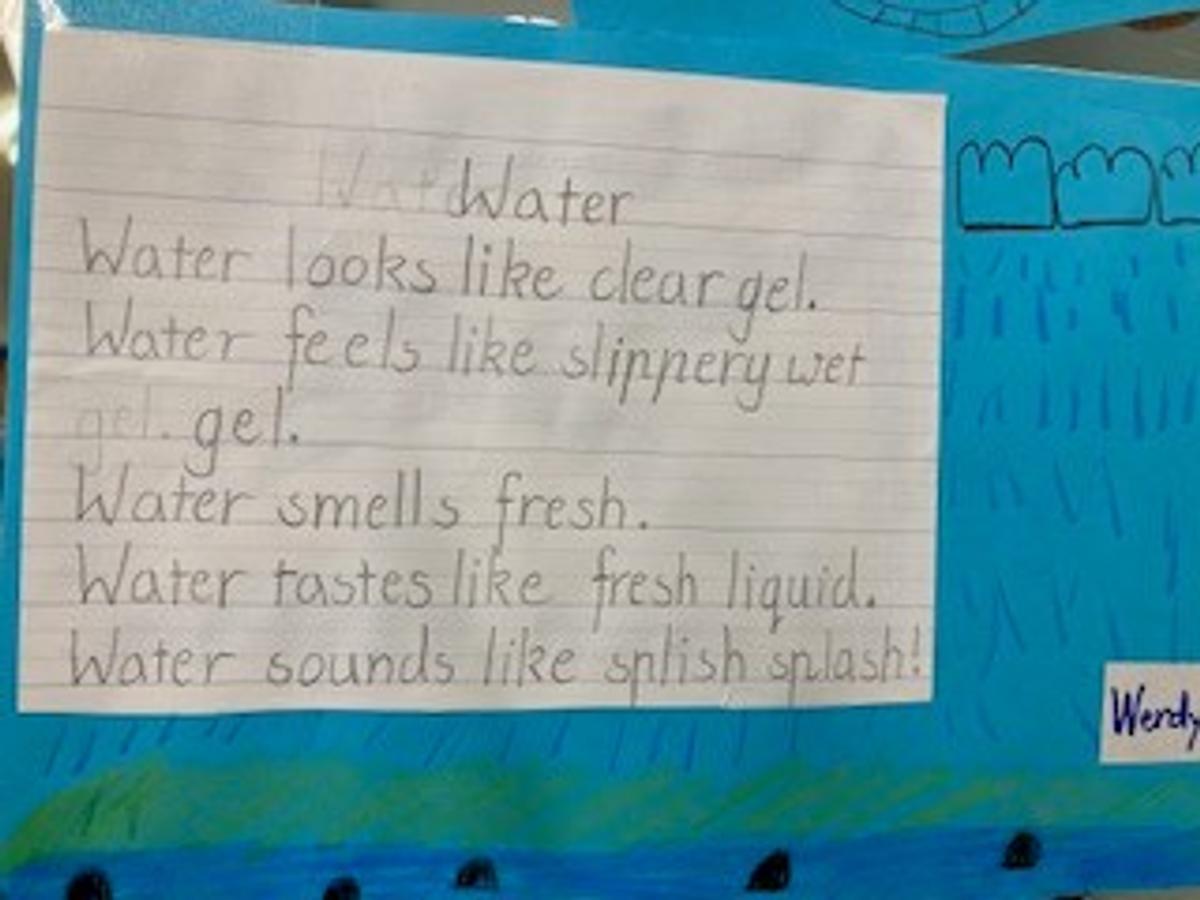 Water
Water looks like clear gel.
Water feels like slippery wet
gel.
Water smells fresh.
Water tastes like fresh liquid.
Water sounds like splish splash!